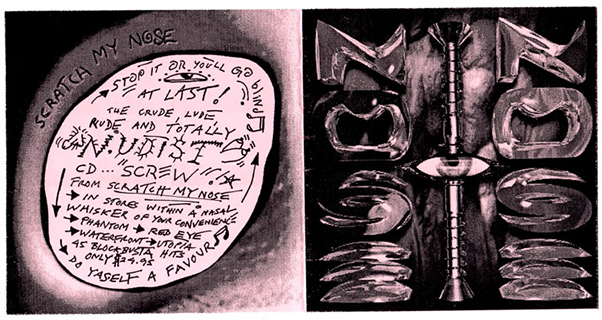 SCRATCH MY NOSE
STOP IT OR YOU'LL GO BLIND
AT LAST!
THE CRUDE, LUDE
RUDE AND TOTALLY
NUDIST
CD... SCREW!
FROM SCRATCH MY NOSE
→ IN STORES WITHIN A NASAL
WHISKER OF YOUR CONVENIENCE
→ PHANTOM → RED EYE
→ WATERFRONT → UTOPIA
45 BLOCKBUSTA HITS
ONLY $24.95
DO YASELF A FAVOUR